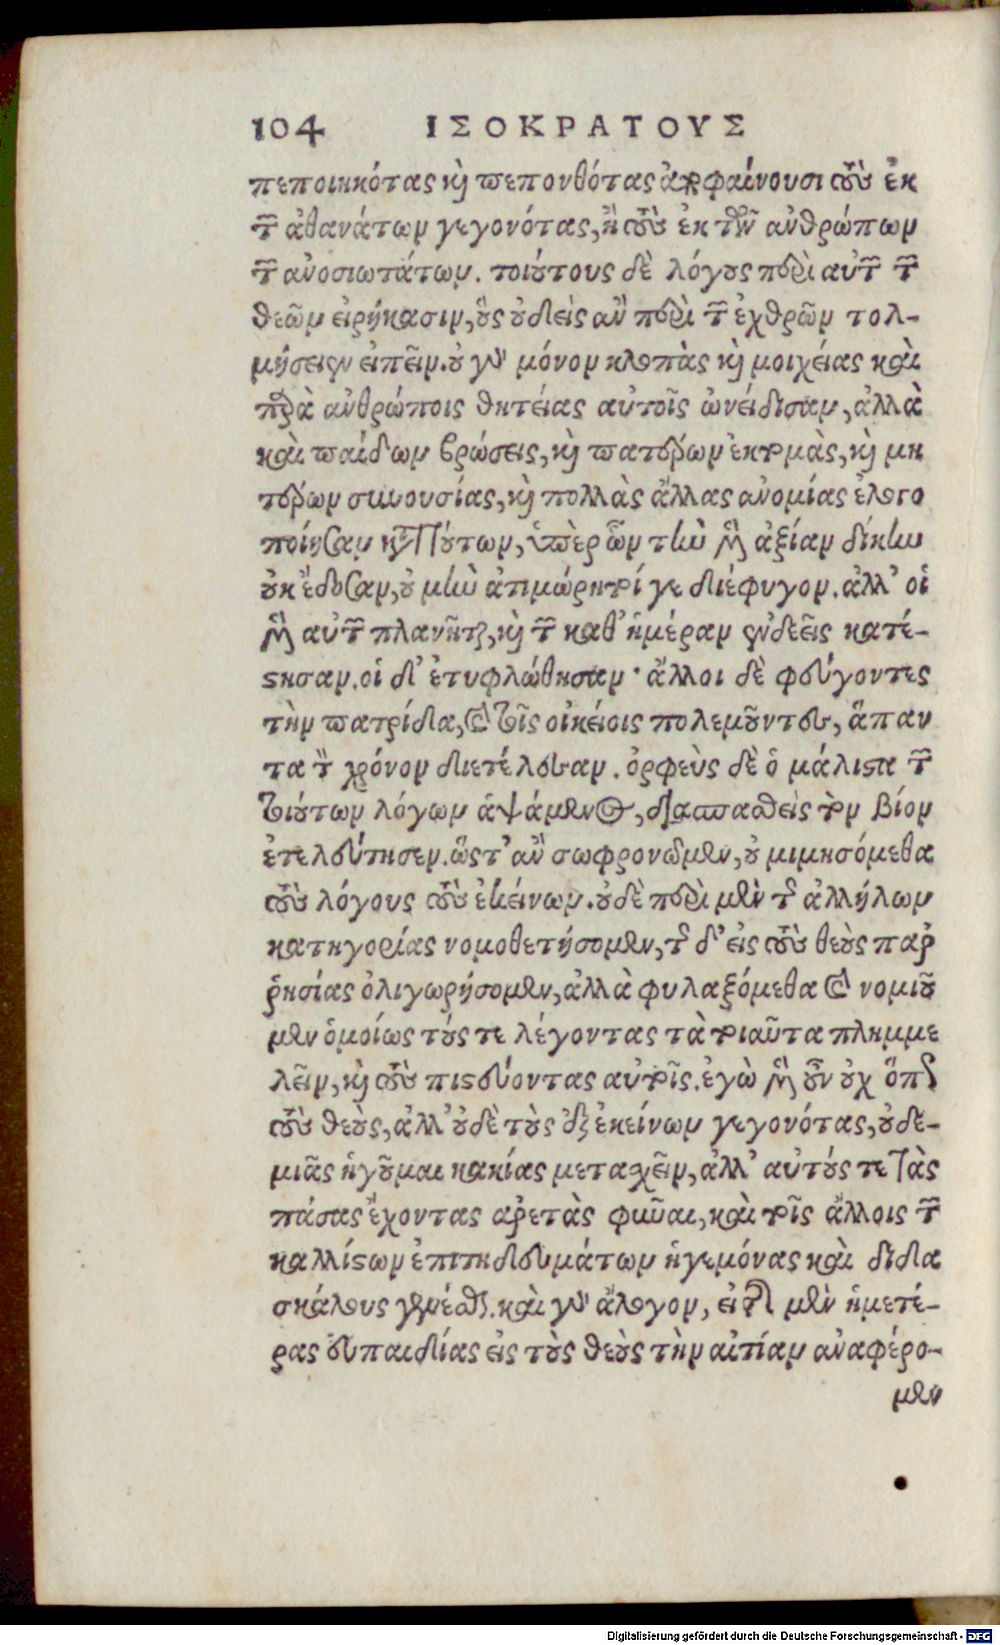 104 ΙΣΟΚΡΑΤΟΥΣ
πεποιηκότας καὶ πεπονθότας ἀποφαίνουσι τοὺς ἐκ
τῶν ἀθανάτων γεγονότας, ἢ τοὺς ἐκ τῶν ἀνθρώπων
τῶν ἀνοσιωτάτων. τοιούτους δὲ λόγους περὶ αὐτῶν τῶν
θεῶν εἰρήκασιν, οὓς οὐδεὶς ἂν περὶ τῶν ἐχθρῶν τολ-
μήσειεν εἰπεῖν. οὐ γὰρ μόνον κλοπὰς καὶ μοιχείας καὶ
παρὰ ἀνθρώποις θητείας αὐτοῖς ὠνείδισαν, ἀλλὰ
καὶ παίδων βρώσεις, καὶ πατέρων ἐκτομὰς, καὶ μη
τέρων συνουσίας, καὶ πολλὰς ἄλλας ἀνομίας ἐλογο
ποίησαν κατὰ τούτων, ὑπὲρ ὧν τὴν μὲν ἀξίαν δίκην
οὐκ ἔδοσαν, οὐ μὴν ἀτιμώρητοί γε διέφυγον. ἀλλ' οἱ
μὲν αὐτῶν πλανῆται, καὶ τῶν καθ' ἡμέραν ἐνδεεῖς κατέ-
στησαν. οἱ δ' ἐτυφλώθησαν· ἄλλοι δὲ φεύγοντες
τὴν πατρίδα, καὶ τοῖς οἰκείοις πολεμοῦντες, ἅπαν
τα τὸν χρόνον διετέλεσαν. ὀρφεὺς δὲ ὁ μάλιστα τῶν
τοιούτων λόγων ἁψάμενος, διασπασθεὶς τὸν βίον
ἐτελεύτησεν. ὥστ' ἂν σωφρονῶμεν, οὐ μιμησόμεθα
τοὺς λόγους τοὺς ἐκείνων. οὐδὲ περὶ μὲν τῆς ἀλλήλων
κατηγορίας νομοθετήσομεν, τῆς δ' εἰς τοὺς θεοὺς παῤ
ῥησίας ὀλιγωρήσομεν, ἀλλὰ φυλαξόμεθα καὶ νομιοῦ
μεν ὁμοίως τούς τε λέγοντας τὰ τοιαῦτα πλημμε
λεῖν, καὶ τοὺς πιστεύοντας αὐτοῖς. ἐγὼ μὲν οὖν οὐχ ὅπως
τοὺς θεοὺς, ἀλλ' οὐδὲ τοὺς ἐξ ἐκείνων γεγονότας, οὐδε-
μιᾶς ἡγοῦμαι κακίας μετασχεῖν, ἀλλ' αὐτούς τε τὰς
πάσας ἔχοντας ἀρετὰς φῦναι, καὶ τοῖς ἄλλοις τῶν
καλλίστων ἐπιτηδευμάτων ἡγεμόνας καὶ διδα
σκάλους γενέσθαι. καὶ γὰρ ἄλογον, εἰ τῆς μὲν ἡμετέ-
ρας εὐπαιδίας εἰς τοὺς θεοὺς τὴν αἰτίαν ἀναφέρο-
μεν
Digitalisierung gefördert durch die Deutsche Forschungsgemeinschaft - DFG